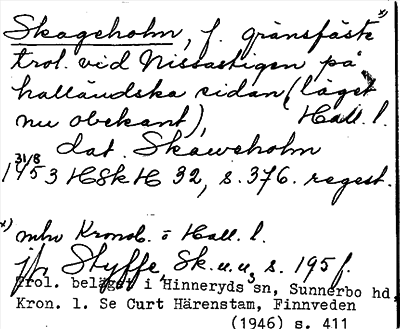 Skogeholm, f. gränsfäste x)
trol. vid Nissastigen på
halländska sidan (läget
nu obekant), Hall. l.
dat. Skaweholm
31/8
1453 HSkH 32, s. 376. regest.
x) mhv Kronob. o Hall. l.
jfr Styffe, Sk.u.u, s. 195 f.
trol. beläget i Hinneryds sn, Sunnerbo hd,
Kron. l. Se Curt Härenstam, Finnveden
(1946) s. 411